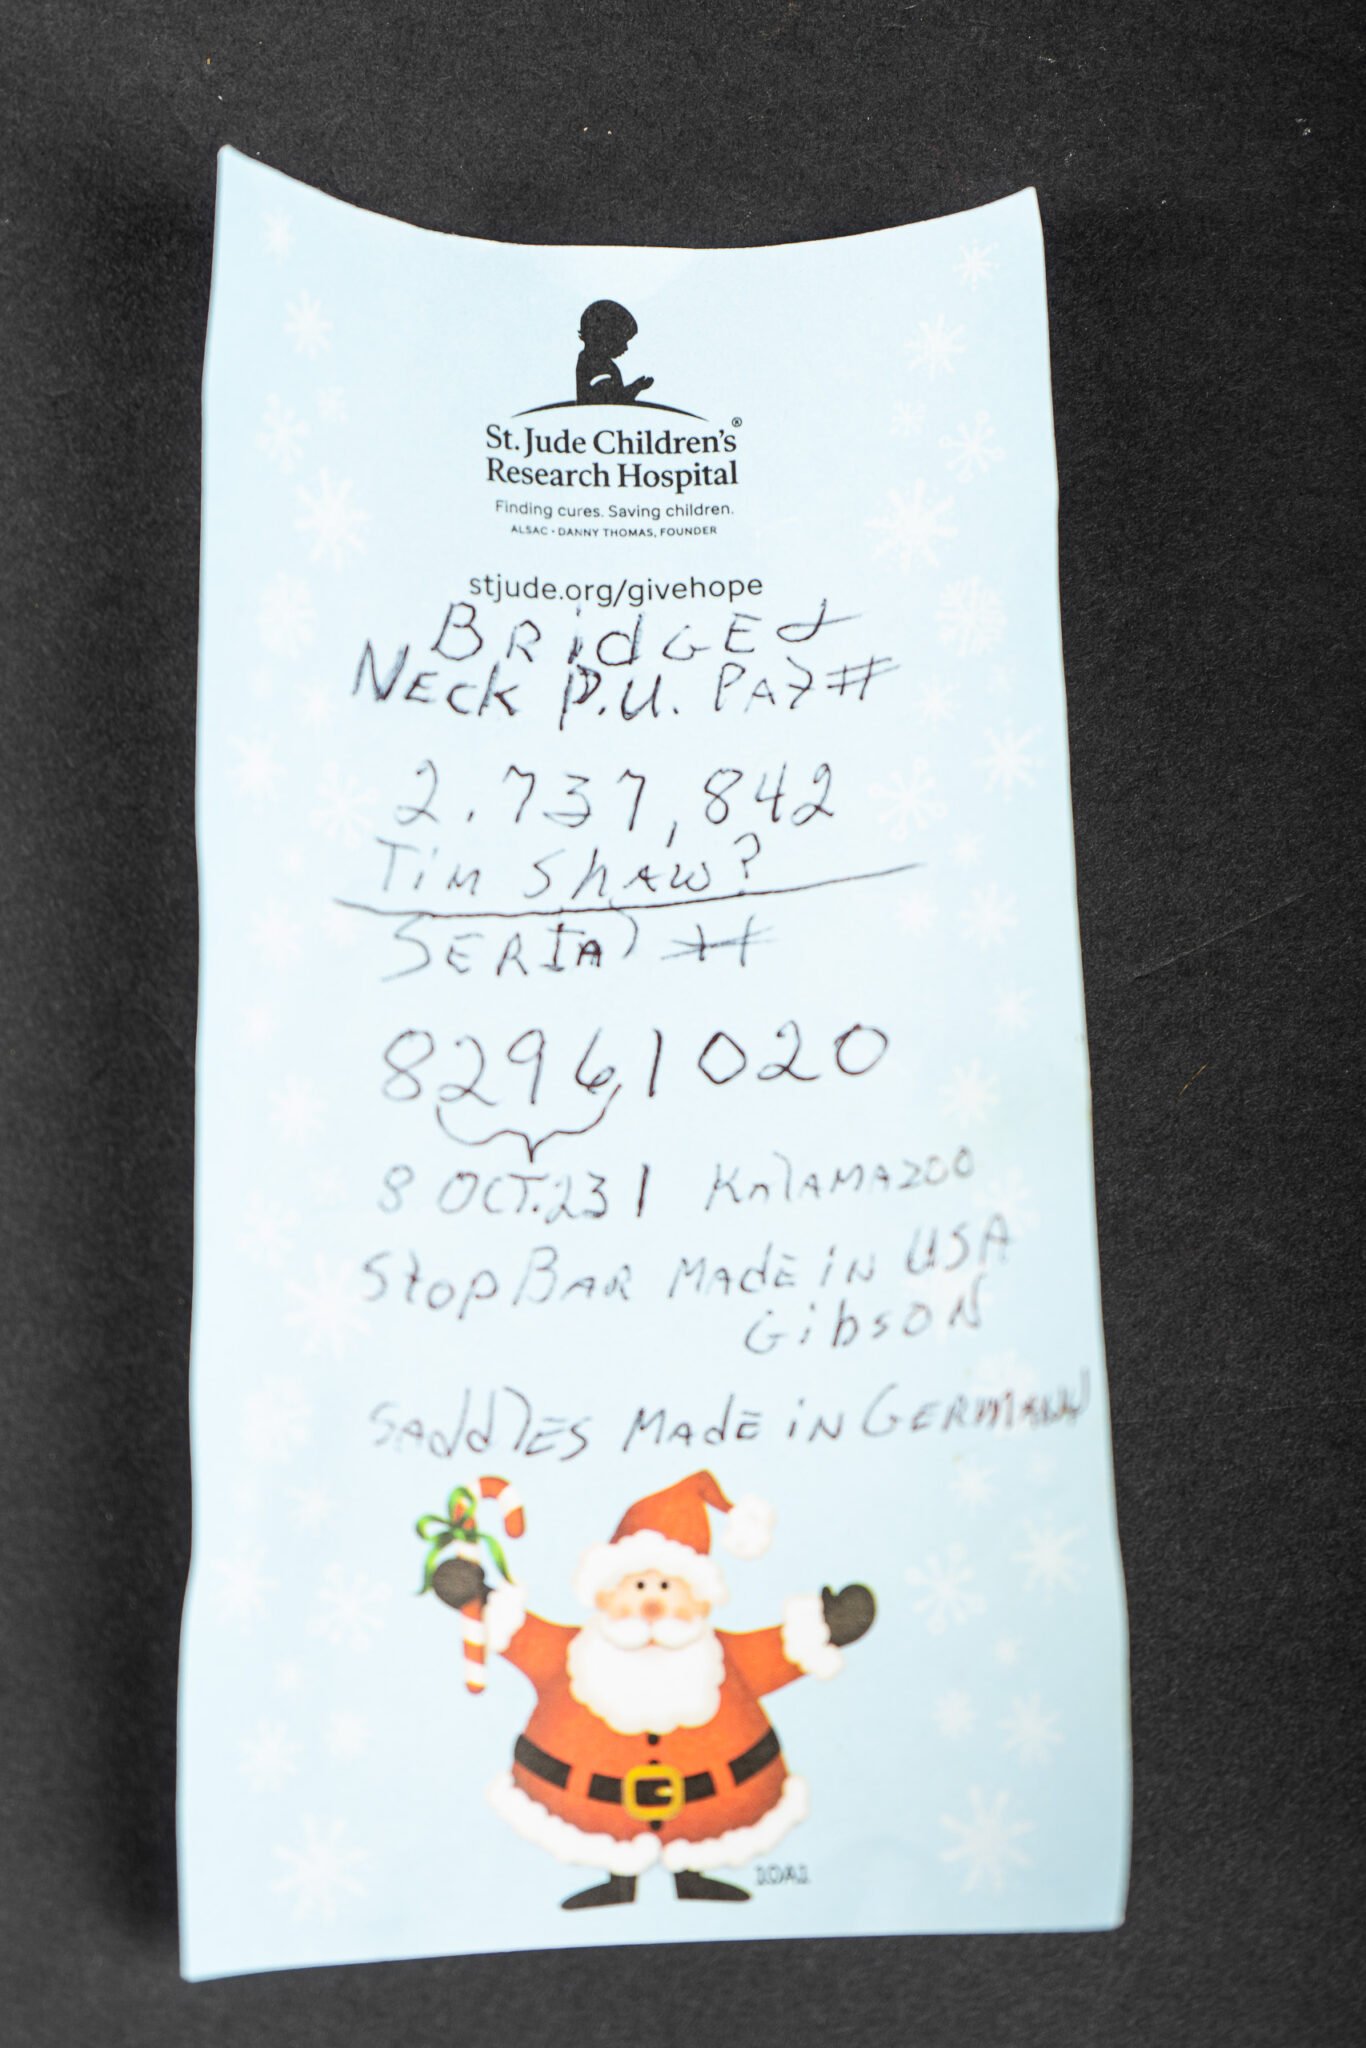 St. Jude Children's®
Research Hospital
Finding cures. Saving children.
ALSAC · DANNY THOMAS, FOUNDER
stjude.org/givehope
BRidGE &
NECK P.U. PAT#
2.737,842
TiM ShAW?
SERIAl #
82961020
8 OCT.23 1 KAlAMAZOO
Stop BAR MAdE iN USA
GibsoN
SAddlES MAdE iN GERMANY